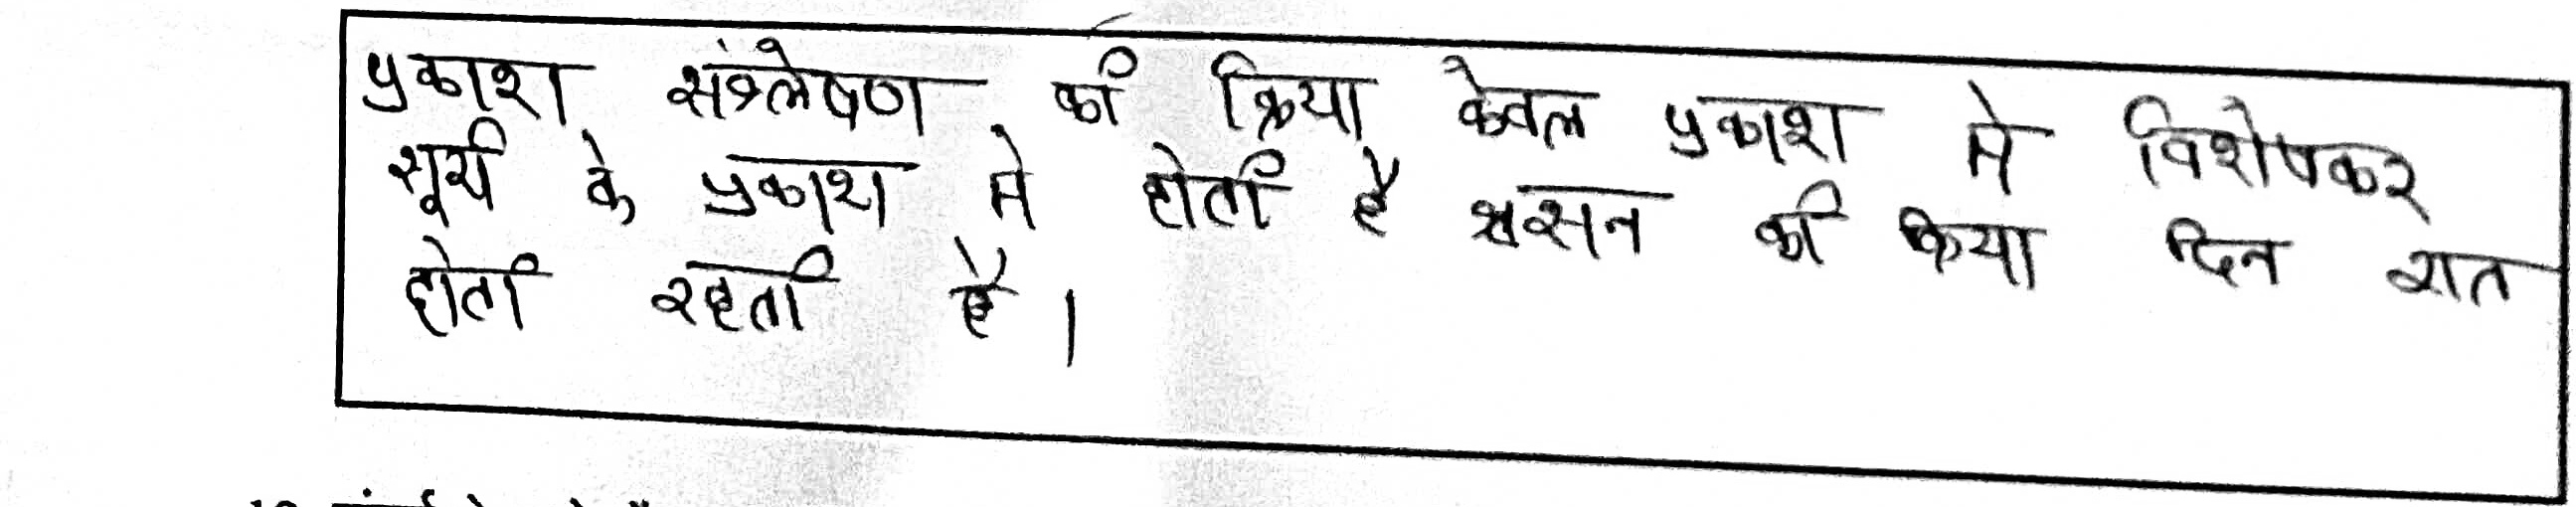 प्रकाश संश्लेषण की क्रिया केवल प्रकाश मे विशेषकर
सूर्य के प्रकाश मे होती है श्वसन की क्रिया दिन रात
होती रहती है।